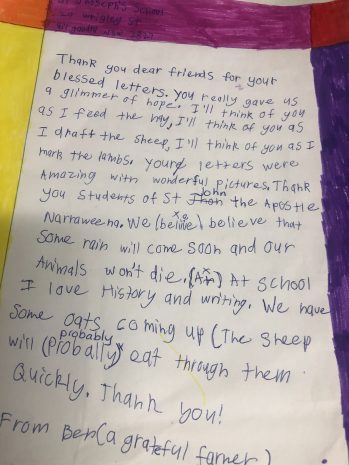 St Joseph's School
Wrigley St
Gilgandra NSW 2827
Thank you dear friends for your
blessed letters. you really gave us
a glimmer of hope. I'll think of you
as I feed the hay, I'll think of you as
I draft the sheep, I'll think of you as I
mark the lambs. your letters were
Amazing with wonderful pictures. Thank
John
you students of St Jhon the Apostle
Narraweena. We (belive) believe that
some rain will come soon and our
Animals won't die. (An) At school
I love History and writing. We have
Some oats coming up (The sheep
probably
will (probally) eat through them
Quickly. Thank you!
From Ben (a grateful famer)